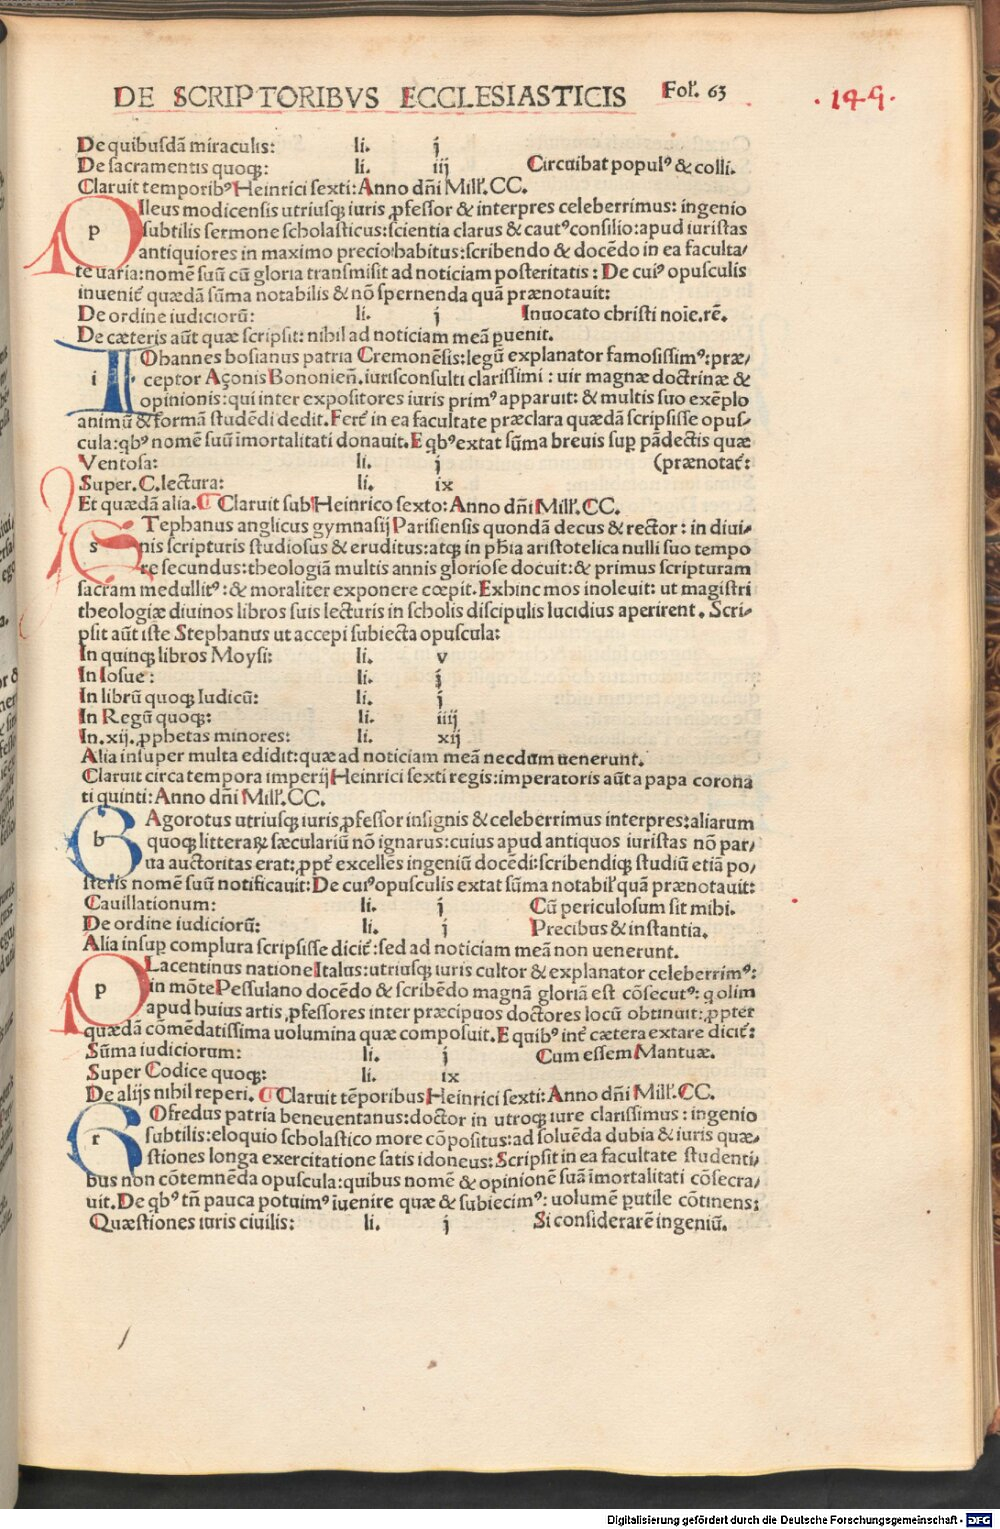 DE SCRIPTORIBVS ECCLESIASTICIS Fol. 63 .149.
De quibusdã miraculis: li. j
De sacramentis quoqꝫ: li. iij Circuibat populꝰ & colli.
Claruit temporibꝰ Heinrici sexti: Anno dñi Mill'. CC.
p Ileus modicensis utriusqꝫ iuris ꝓfessor & interpres celeberrimus: ingenio
subtilis sermone scholasticus: scientia clarus & cautꝰ consilio: apud iuristas
antiquiores in maximo precio habitus: scribendo & docẽdo in ea faculta⸗
te uaria: nomẽ suũ cũ gloria transmisit ad noticiam posteritatis: De cuiꝰ opusculis
inuenit̃ quædã sũma notabilis & nõ spernenda quã prænotauit:
De ordine iudiciorũ: li. j Inuocato christi noĩe. rẽ.
De cæteris aũt quæ scripsit: nihil ad noticiam meã ꝑuenit.
i Ohannes bosianus patria Cremonẽsis: legũ explanator famosissimꝰ: præ⸗
ceptor Açonis Bononieñ. iurisconsulti clarissimi: uir magnæ doctrinæ &
opinionis: qui inter expositores iuris primꝰ apparuit: & multis suo exẽplo
animũ & formã studẽdi dedit. Fert̃ in ea facultate præclara quædã scripsisse opus⸗
cula: qbꝰ nomẽ suũ ĩmortalitati donauit. E qbꝰ extat sũma breuis sup̱ pãdectis quæ
Ventosa: li. j (prænotat̃:
Super. C. lectura: li. ix
Et quædã alia. ⸿ Claruit sub Heinrico sexto: Anno dñi Mill'. CC.
s Tephanus anglicus gymnasij Parisiensis quondã decus & rector: in diui⸗
nis scripturis studiosus & eruditus: atqꝫ in phĩa aristotelica nulli suo tempo
re secundus: theologiã multis annis gloriose docuit: & primus scripturam
sacram medullitꝰ: & moraliter exponere cœpit. Exhinc mos inoleuit: ut magistri
theologiæ diuinos libros suis lecturis in scholis discipulis lucidius aperirent. Scri⸗
psit aũt iste Stephanus ut accepi subiecta opuscula:
In quinqꝫ libros Moysi: li. v
In Iosue: li. j
In librũ quoqꝫ Iudicũ: li. j
In Regũ quoqꝫ: li. iiij
In. xij. ꝓphetas minores: li. xij
Alia insuper multa edidit: quæ ad noticiam meã necdum uenerunt.
Claruit circa tempora imperij Heinrici sexti regis: imperatoris aũt a papa corona
ti quinti: Anno dñi Mill'. CC.
b Agorotus utriusqꝫ iuris ꝓfessor insignis & celeberrimus interpres: aliarum
quoqꝫ litterarꝫ sæculariũ nõ ignarus: cuius apud antiquos iuristas nõ par⸗
ua auctoritas erat: ꝓpt̃ excellẽs ingeniũ docẽdi: scribendiqꝫ studiũ etiã po⸗
steris nomẽ suũ notificauit: De cuiꝰ opusculis extat sũma notabil' quã prænotauit:
Cauillationum: li. j Cũ periculosum sit mihi.
De ordine iudiciorũ: li. j Precibus & instantia.
Alia insup̱ complura scripsisse dicit̃: sed ad noticiam meã non uenerunt.
p Lacentinus natione Italus: utriusqꝫ iuris cultor & explanator celeberrimꝰ:
in mõte Pessulano docẽdo & scribẽdo magnã gloriã est cõsecutꝰ: q olim
apud huius artis ꝓfessores inter præcipuos doctores locũ obtinuit: ꝓpter
quædã cõmẽdatissima uolumina quæ composuit. E quibꝰ int̃ cætera extare dicit̃:
Sũma iudiciorum: li. j Cum essem Mantuæ.
Super Codice quoqꝫ: li. ix
De alijs nihil reperi. ⸿ Claruit tẽporibus Heinrici sexti: Anno dñi Mill'. CC.
r Ofredus patria beneuentanus: doctor in utroqꝫ iure clarissimus: ingenio
subtilis: eloquio scholastico more cõpositus: ad soluẽda dubia & iuris quæ⸗
stiones longa exercitatione satis idoneus: Scripsit in ea facultate studenti⸗
bus non cõtemnẽda opuscula: quibus nomẽ & opinionẽ suã ĩmortalitati cõsecra⸗
uit. De qbꝰ tñ pauca potuimꝰ ĩuenire quæ & subiecimꝰ: uolumẽ ꝑutile cõtinens:
Quæstiones iuris ciuilis: li. j Si considerarẽ ingeniũ.
Digitalisierung gefördert durch die Deutsche Forschungsgemeinschaft - DFG